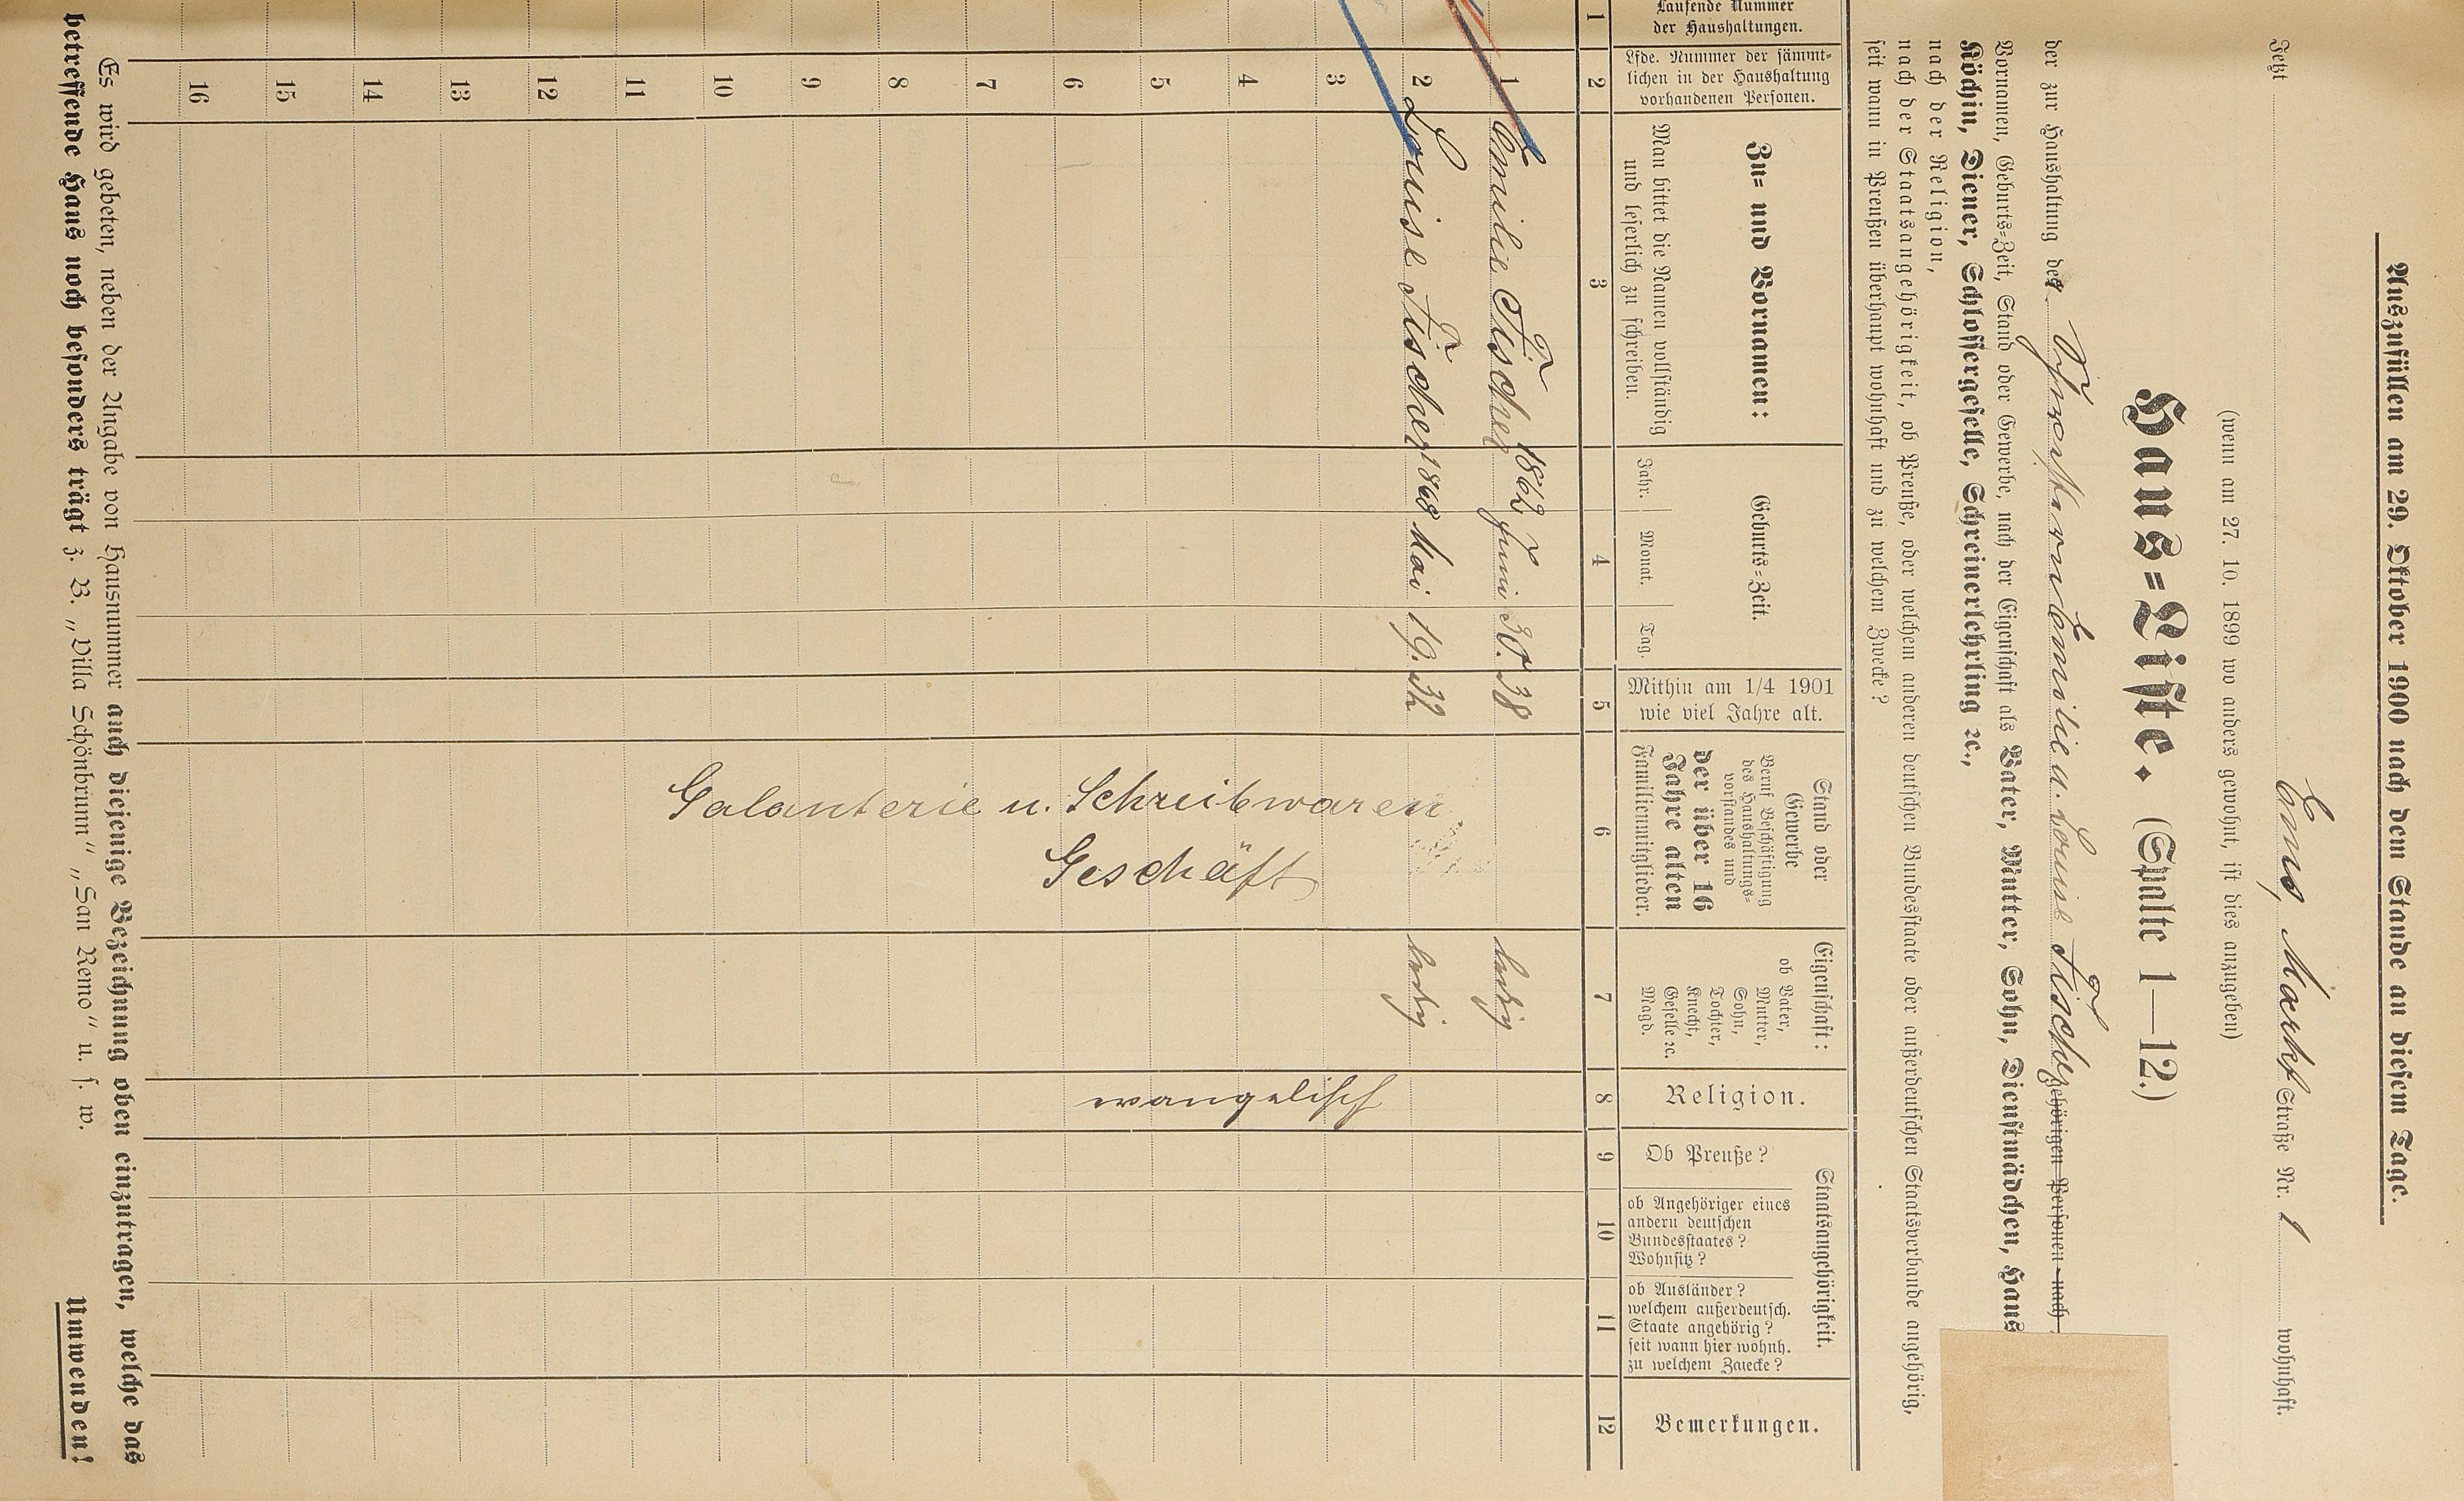 Auszufüllen am 29. Oktober 1900 nach dem Stande an diesem Tage.
Jetzt Ems, Markt Straße Nr. 1 wohnhaft.
(wenn am 27. 10. 1899 wo anders gewohnt, ist dies anzugeben)
Haus-Liste. (Spalte 1—12.)
der zur Haushaltung der Geschwister Emilie u. Louise Fischer gehörigen Personen nach
Vornamen, Geburts-Zeit, Stand oder Gewerbe, nach der Eigenschaft als Vater, Mutter, Sohn, Dienstmädchen, Haus
Köchin, Diener, Schlossergeselle, Schreinerlehrling ꝛc.,
nach der Religion,
nach der Staatsangehörigkeit, ob Preuße, oder welchem anderen deutschen Bundesstaate oder außerdeutschen Staatsverbande angehörig,
seit wann in Preußen überhaupt wohnhaft und zu welchem Zwecke?
Laufende Nummer
der Haushaltungen.
Lfde. Nummer der sämmt-
lichen in der Haushaltung
vorhandenen Personen.
Zu- und Vornamen:
Man bittet die Namen vollständig
und leserlich zu schreiben.
Geburts-Zeit.
Jahr. Monat. Tag.
Mithin am 1/4 1901
wie viel Jahre alt.
Stand oder
Gewerbe
Beruf Beschäftigung
des Haushaltungs-
vorstandes und
der über 16
Jahre alten
Familienmitglieder.
Eigenschaft:
ob Vater,
Mutter,
Sohn,
Tochter,
Knecht,
Geselle ꝛc.
Magd.
Religion.
Staatsangehörigkeit.
Ob Preuße?
ob Angehöriger eines
andern deutschen
Bundesstaates?
Wohnsitz?
ob Ausländer?
welchem außerdeutsch.
Staate angehörig?
seit wann hier wohnh.
zu welchem Zwecke?
Bemerkungen.
1 2 3 4 5 6 7 8 9 10 11 12
1 Emilie Fischer 1862 Juni 30. 38 ledig
2 Louise Fischer 1868 Mai 19. 32 ledig
Galanterie u. Schreibwaren
Geschäft
evangelisch
3
4
5
6
7
8
9
10
11
12
13
14
15
16
Es wird gebeten, neben der Angabe von Hausnummer auch diejenige Bezeichnung oben einzutragen, welche das
betreffende Haus noch besonders trägt z. B. „Villa Schönbrunn" „San Remo" u. s. w.
Umwenden!